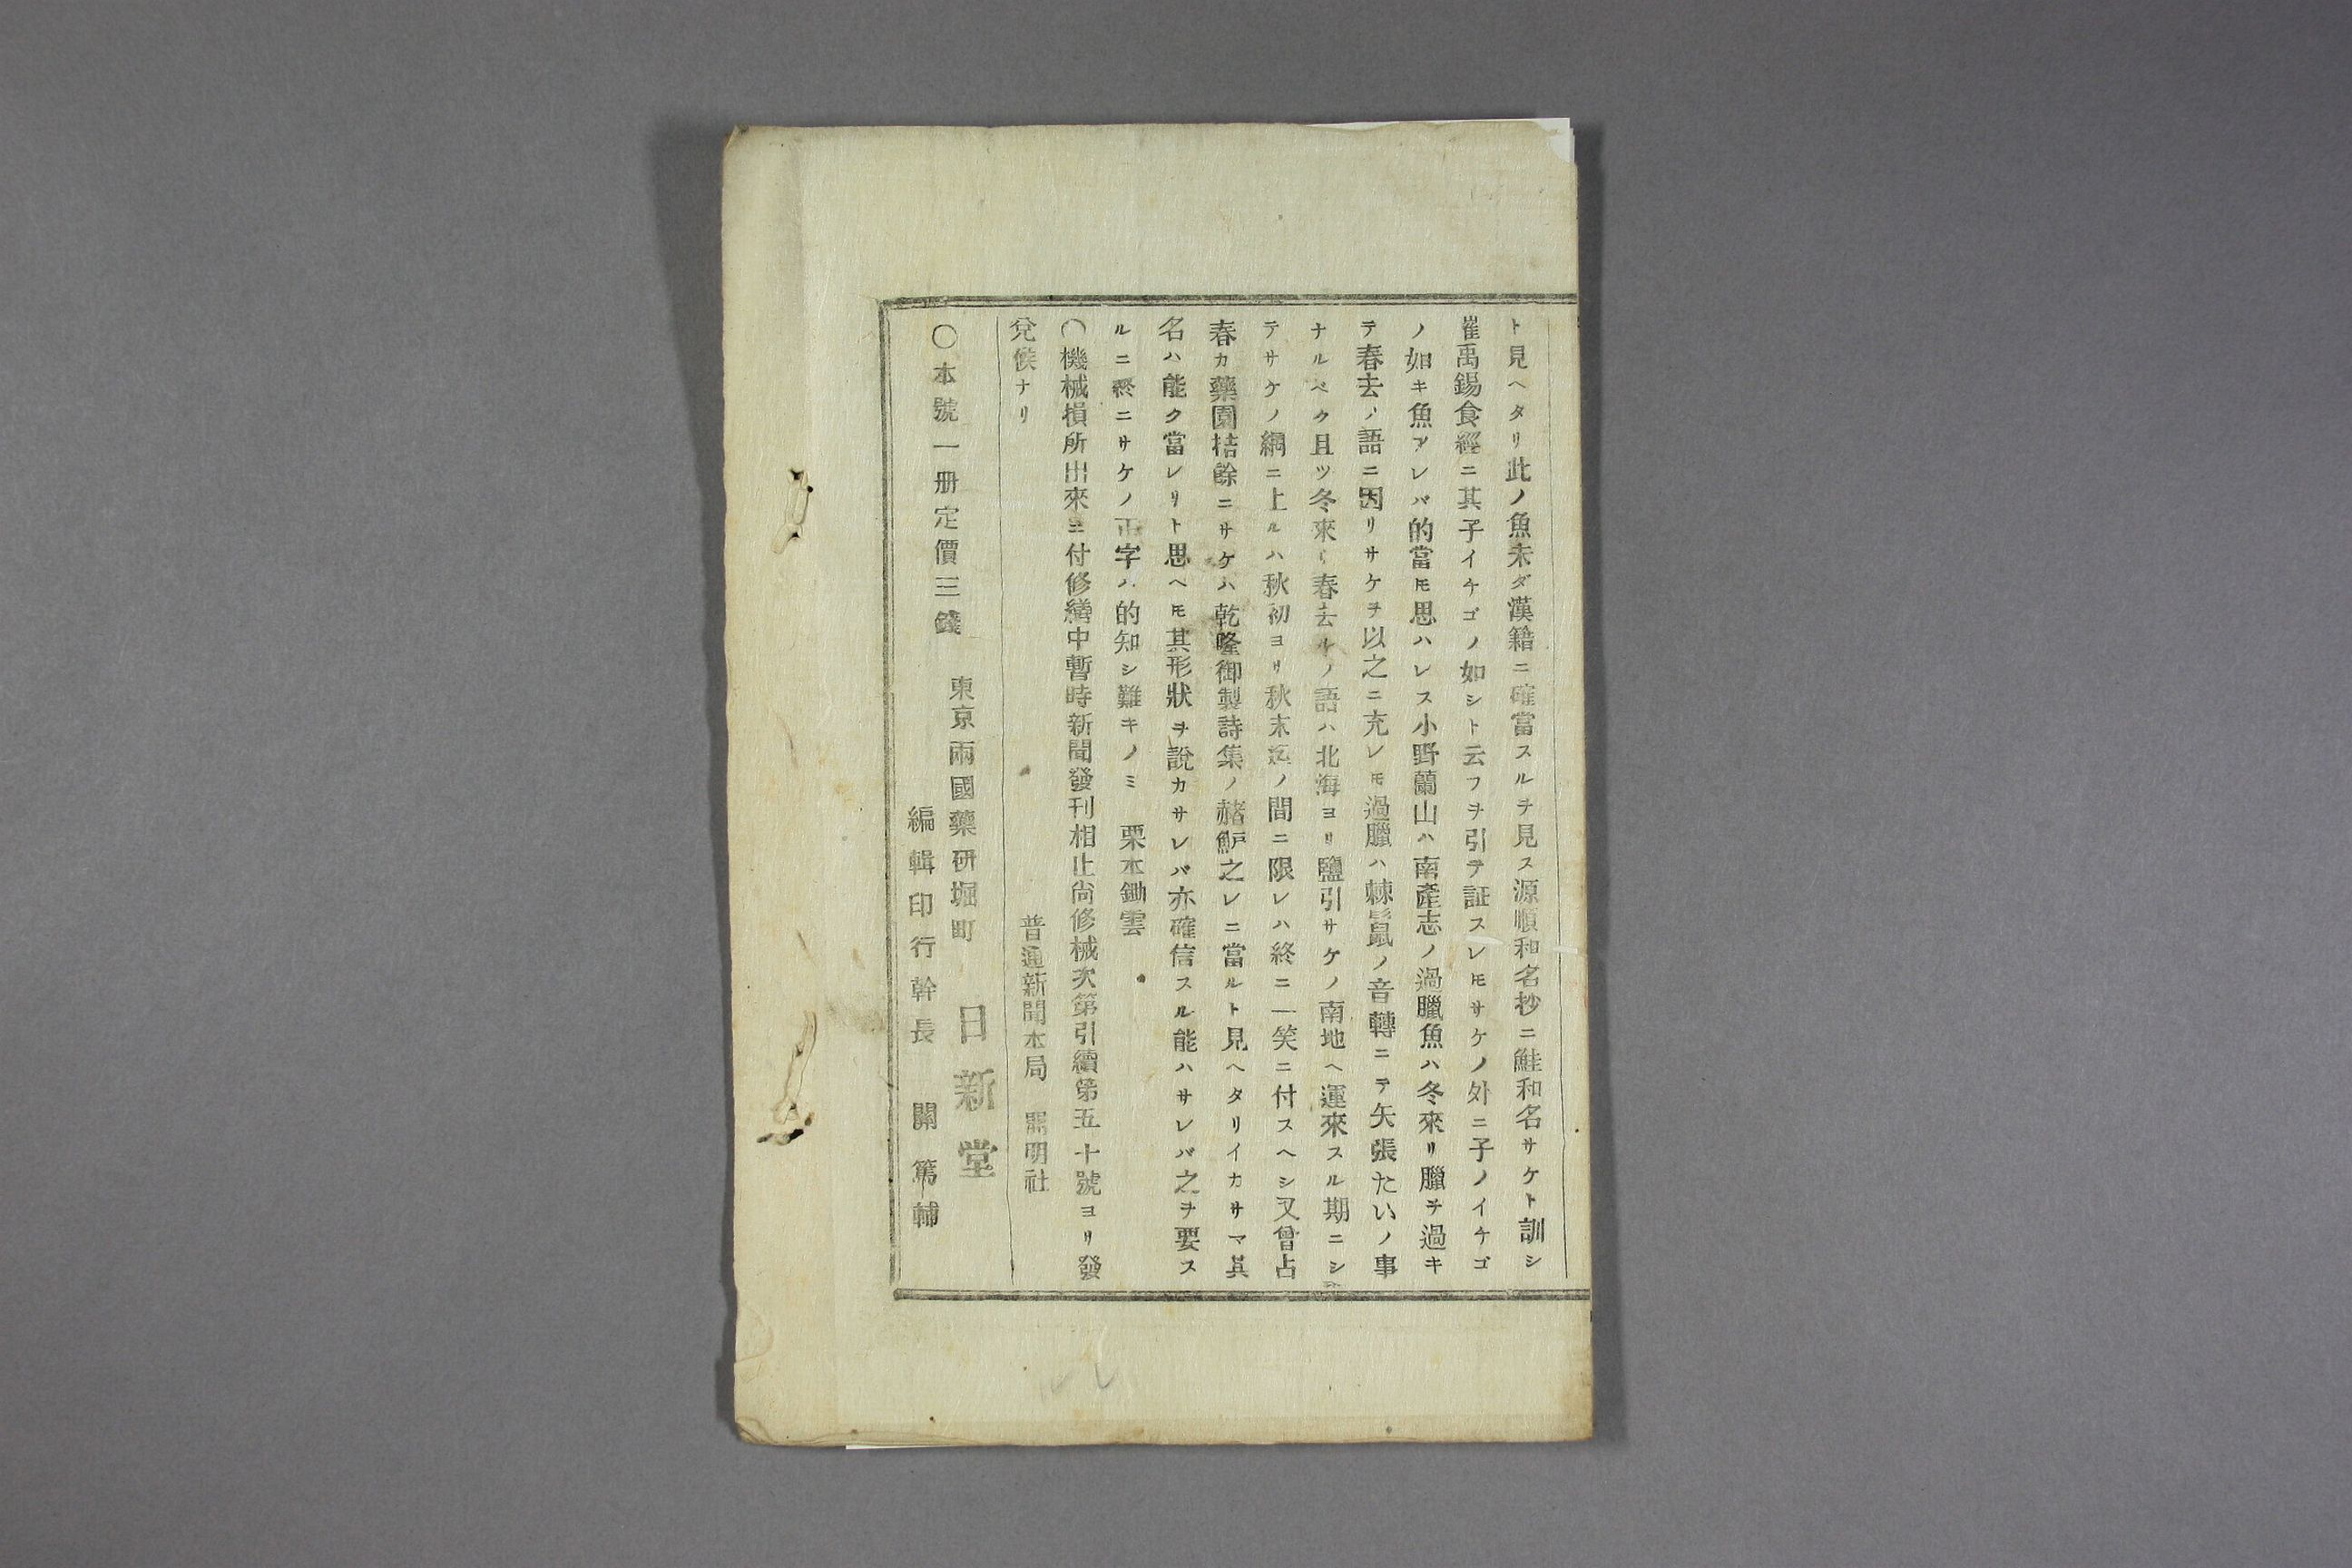 ト見ヘタリ此ノ魚未ダ漢籍ニ確當スルヲ見ス源順和名抄ニ鮭和名サケト訓シ
崔禹錫食經ニ其子イチゴノ如シト云フヲ引テ証スレ𪜈サケノ外ニ子ノイチゴ
ノ如キ魚アレバ的當𪜈思ハレス小野蘭山ハ南產志ノ過臘魚ハ冬來リ臘ヲ過キ
テ春去ノ語ニ因リサケヲ以之ニ充レ𪜈過臘ハ棘鬣ノ音轉ニテ矢張たいノ事
ナルベク且ツ冬來リ春去ルノ語ハ北海ヨリ鹽引サケノ南地ヘ運來スル期ニシ
テサケノ網ニ上ルハ秋初ヨリ秋末迄ノ間ニ限レハ終ニ一笑ニ付スヘシ又曾占
春カ藥園拮餘ニサケハ乾隆御製詩集ノ赭鱸之レニ當ルト見ヘタリイカサマ其
名ハ能ク當レリト思ヘ𪜈其形狀ヲ說カサレバ亦確信スル能ハサレバ之ヲ要ス
ルニ終ニサケノ正字ハ的知シ難キノミ 栗本鋤雲
〇機械損所出來ニ付修繕中暫時新聞發刊相止尙修械次第引續第五十號ヨリ發
兌候ナリ 普通新聞本局 開明社
〇本號一册定價三錢 東京兩國藥研堀町 日新堂
編輯印行幹長 關 篤輔